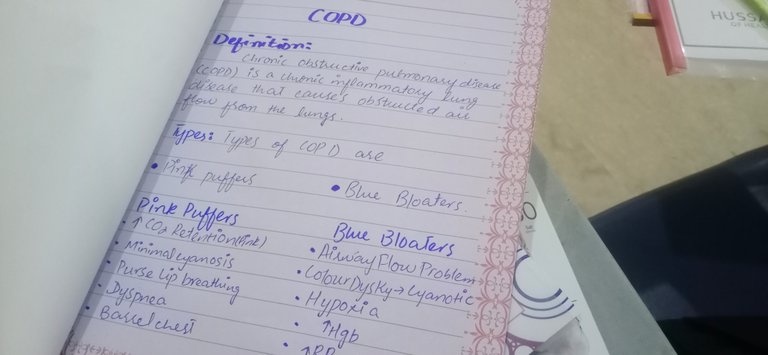 COPD
Definition:
Chronic obstructive pulmonary disease
(COPD) is a chronic inflammatory lung
disease that causes obstructed air
flow from the lungs.
Types: Types of COPD are
• Pink puffers
• Blue Bloaters.
Pink Puffers
• ↑ CO2 Retention (Pink)
• Minimal cyanosis
• Purse lip breathing
• Dyspnea
• Bassel chest
Blue Bloaters
• Airway Flow Problem
• Colour Dysky → Cyanotic
• Hypoxia
• ↑ Hgb
• ↑ RR
HUSSA